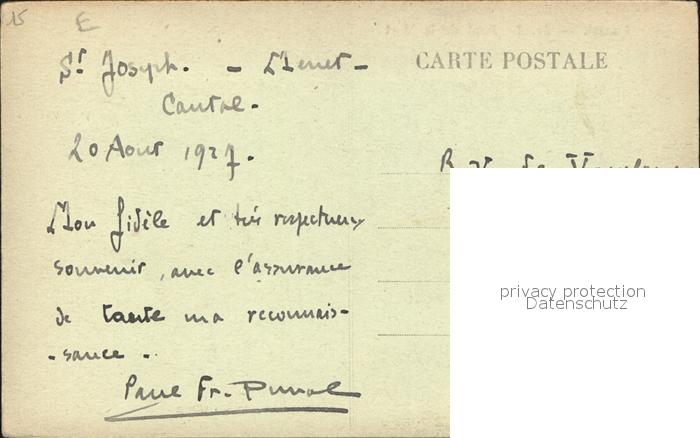 15
E
St Joseph. - Menet -
Cantal.
20 Aout 1927.
Mon fidèle et très respectueux
souvenir, avec l'assurance
de toute ma reconnais-
-sance -.
Paul Fr.
CARTE POSTALE
privacy protection
Datenschutz